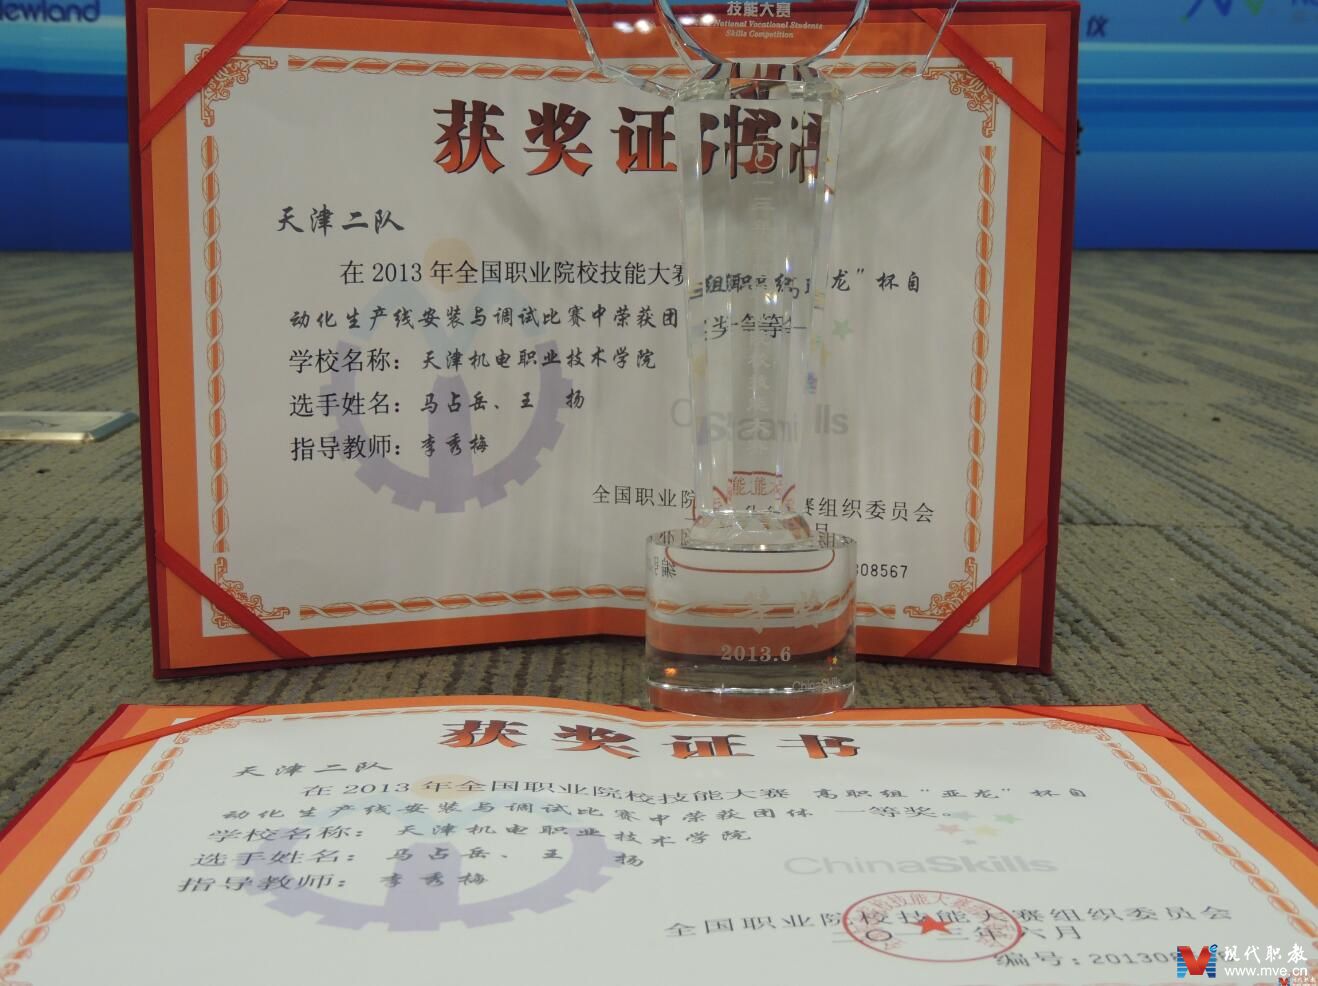 Newland
仪
技能大赛
National Vocational Students
Skills Competition
获奖证书
天津二队
在 2013 年全国职业院校技能大赛 龙”杯自
动化生产线安装与调试比赛中荣获团
学校名称：天津机电职业技术学院
选手姓名：马占岳、王 扬
指导教师：李秀梅
全国职业院 赛组织委员会
308567
2013.6
ChinaSkills
获奖证书
天津二队
在 2013 年全国职业院校技能大赛 高职组“亚龙”杯自
动化生产线安装与调试比赛中荣获团体 一等奖。
学校名称：天津机电职业技术学院
选手姓名：马占岳、王 扬
指导教师：李秀梅
ChinaSkills
全国职业院校技能大赛组织委员会
二〇一三年六月
编号：20130
现代职教
www.mve.cn